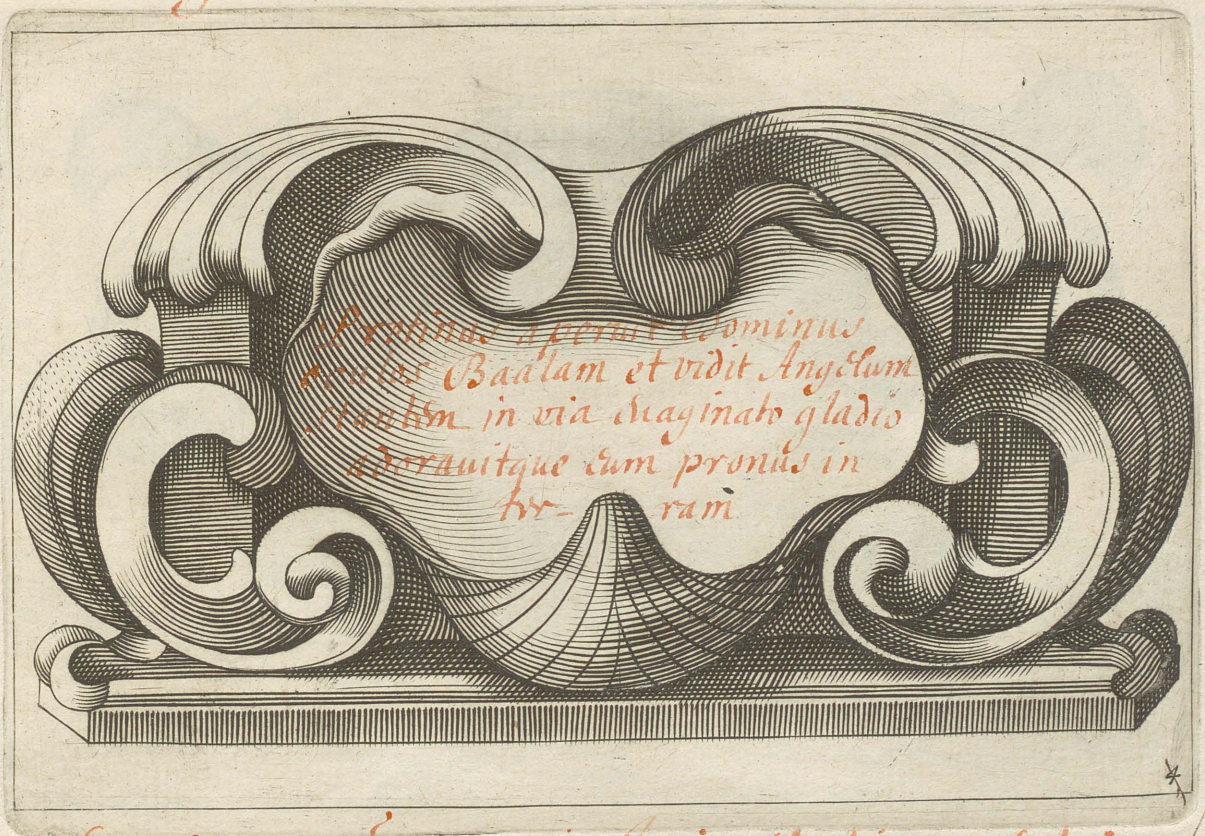 Protinus aperuit Dominus
oculos Baalam et vidit Angelum
stantem in via evaginato gladio
adoravitque eum pronus in
ter- ram
4